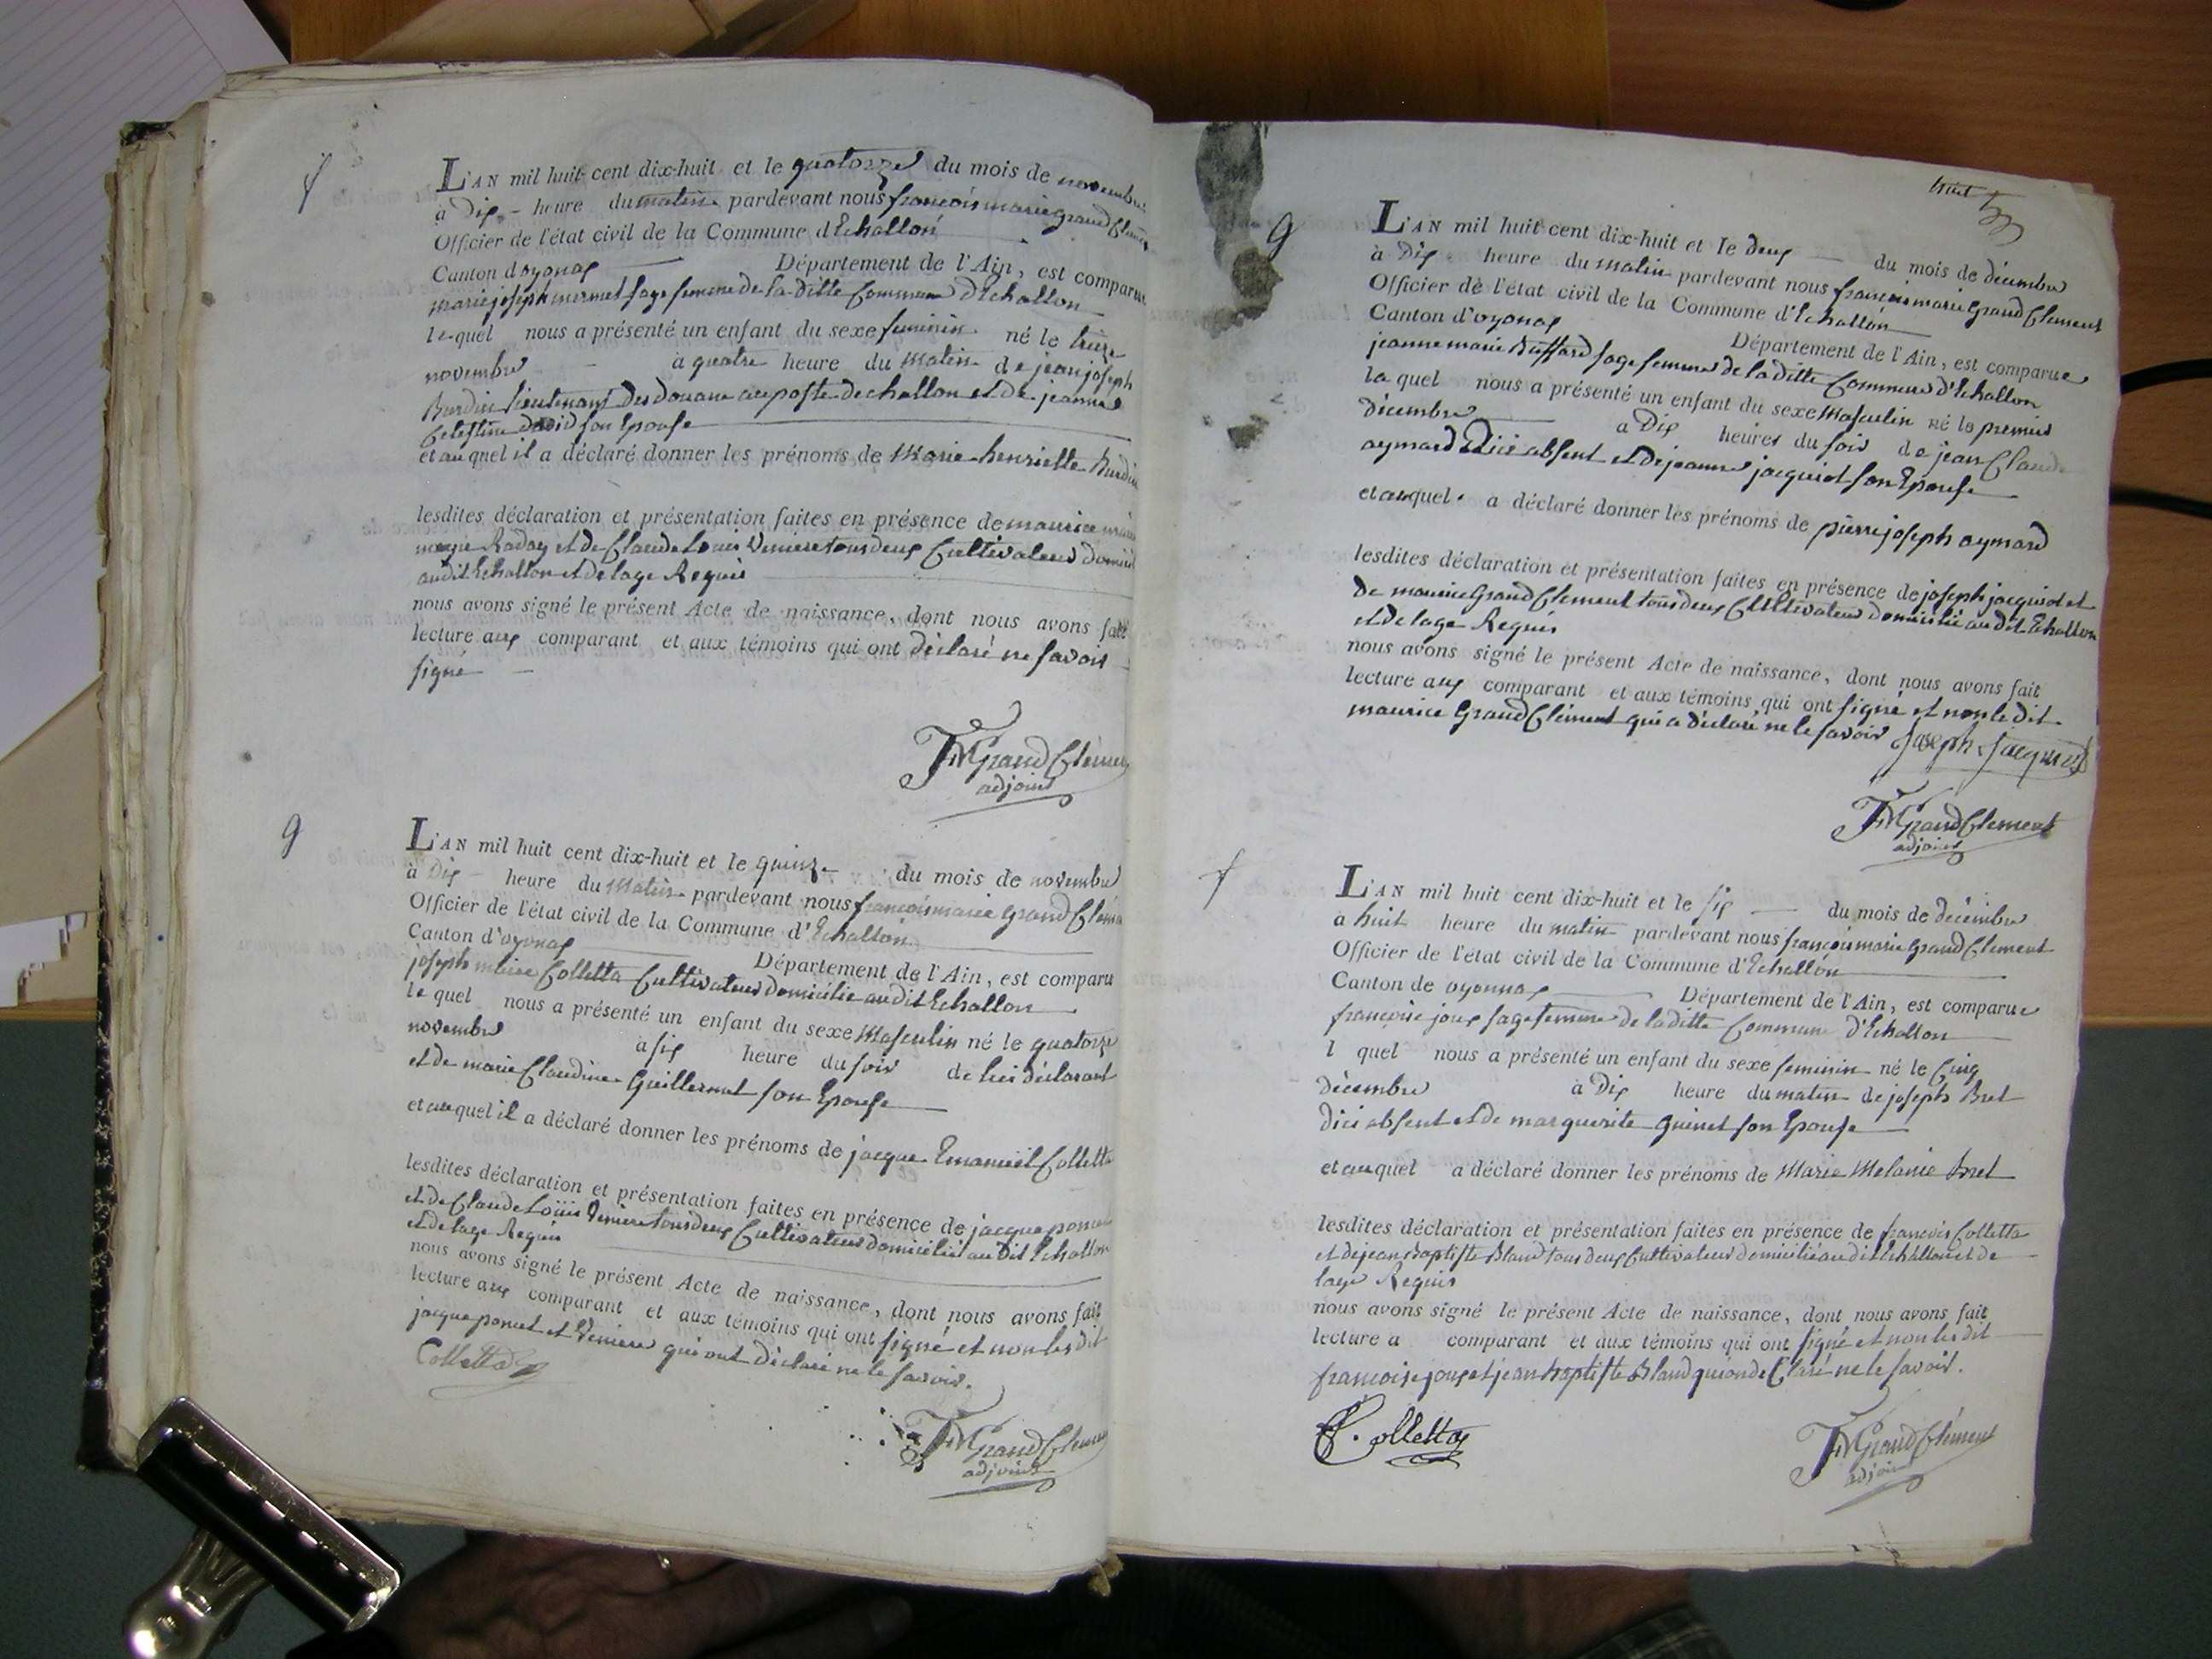 f
L'AN mil huit cent dix-huit et le quatorze du mois de novembre
à Dix - heure du matin pardevant nous françois marie Grand Clément
Officier de l'état civil de la Commune d'Echallon
Canton d'oyonax Département de l'Ain, est comparue
marie joseph mermet sage femme de la ditte Commune D'Echallon
lequel nous a présenté un enfant du sexe feminin né le treize
novembre à quatre heure du matin de jean joseph
Burdin lieutenant des douane au poste dechallon et de jeanne
Celestine David son Epouse
et auquel il a déclaré donner les prénoms de Marie henriette Burdin
lesdites déclaration et présentation faites en présence de maurice
Raday et de Claude Louis Veniere tous deux Cultivateurs
audit Echallon et de lage Requis
nous avons signé le présent Acte de naissance, dont nous avons fait
lecture aux comparant et aux témoins qui ont déclaré ne savoir
signé
FMGrandClément
adjoint
g
L'AN mil huit cent dix-huit et le quinze du mois de novembre
à Dix - heure du Matin pardevant nous françois marie Grand Cléme
Officier de l'état civil de la Commune d'Echallon
Canton d'oyonax Département de l'Ain, est comparu
joseph marie Colletta Cultivateur domicilié au dit Echallon
lequel nous a présenté un enfant du sexe Masculin né le quatorze
novembre à six heure du soir de lui déclarant
et de marie Claudine Guillermet son Epouse
et auquel il a déclaré donner les prénoms de jacque Emanuel Colletta
lesdites déclaration et présentation faites en présence de jacque poncet
et de Claude Louis Veniere tous deux Cultivateur domicilié au Dit Echallon
et de lage Requis
nous avons signé le présent Acte de naissance, dont nous avons fait
lecture aux comparant et aux témoins qui ont signé et non les dit
jacque poncet et Veniere qui ont déclaré ne le savoir.
Colletta
FMGrandClément
adjoint
huit
g
L'AN mil huit cent dix-huit et le deux du mois de décembre
à Dix heure du matin pardevant nous françois marie Grand Clement
Officier de l'état civil de la Commune d'Echallon
Canton d'oyonax Département de l'Ain, est comparue
jeanne marie Buffard sage femme de la ditte Commune d'Echallon
laquel nous a présenté un enfant du sexe Masculin né le premier
décembre à Dix heures du soir de jean Claude
aymard Dici absent et de jeanne jacquiot son Epouse
et auquel a déclaré donner les prénoms de pierre joseph aymard
lesdites déclaration et présentation faites en présence de joseph jacquiot et
de maurice Grand Clement tous deux Cultivateur domicilié au dit Echallon
et de lage Requis
nous avons signé le présent Acte de naissance, dont nous avons fait
lecture aux comparant et aux témoins qui ont signé et non le dit
maurice Grand Clément qui a déclaré ne le savoir Joseph Jacquiot
FMGrandClement
adjoint
f
L'AN mil huit cent dix-huit et le six du mois de décembre
à huit heure du matin pardevant nous françois marie Grand Clement
Officier de l'état civil de la Commune d'Echallon
Canton de oyonnax Département de l'Ain, est comparue
françoise joux sage femme de la ditte Commune d'Echallon
l quel nous a présenté un enfant du sexe feminin né le Cinq
décembre à Dix heure du matin de joseph Bret
dici absent et de marguerite Guinet son Epouse
et auquel a déclaré donner les prénoms de Marie Melanie bret
lesdites déclaration et présentation faites en présence de françois Colletta
et de jean baptiste Bland tous deux Cultivateur domicilié au dit Echallon et de
lage Requis
nous avons signé le présent Acte de naissance, dont nous avons fait
lecture a comparant et aux témoins qui ont signé et non les dit
françoise joux et jean baptiste Bland qui on declaré ne le savoir.
f. Colletta
FMGrandClément
adjoint